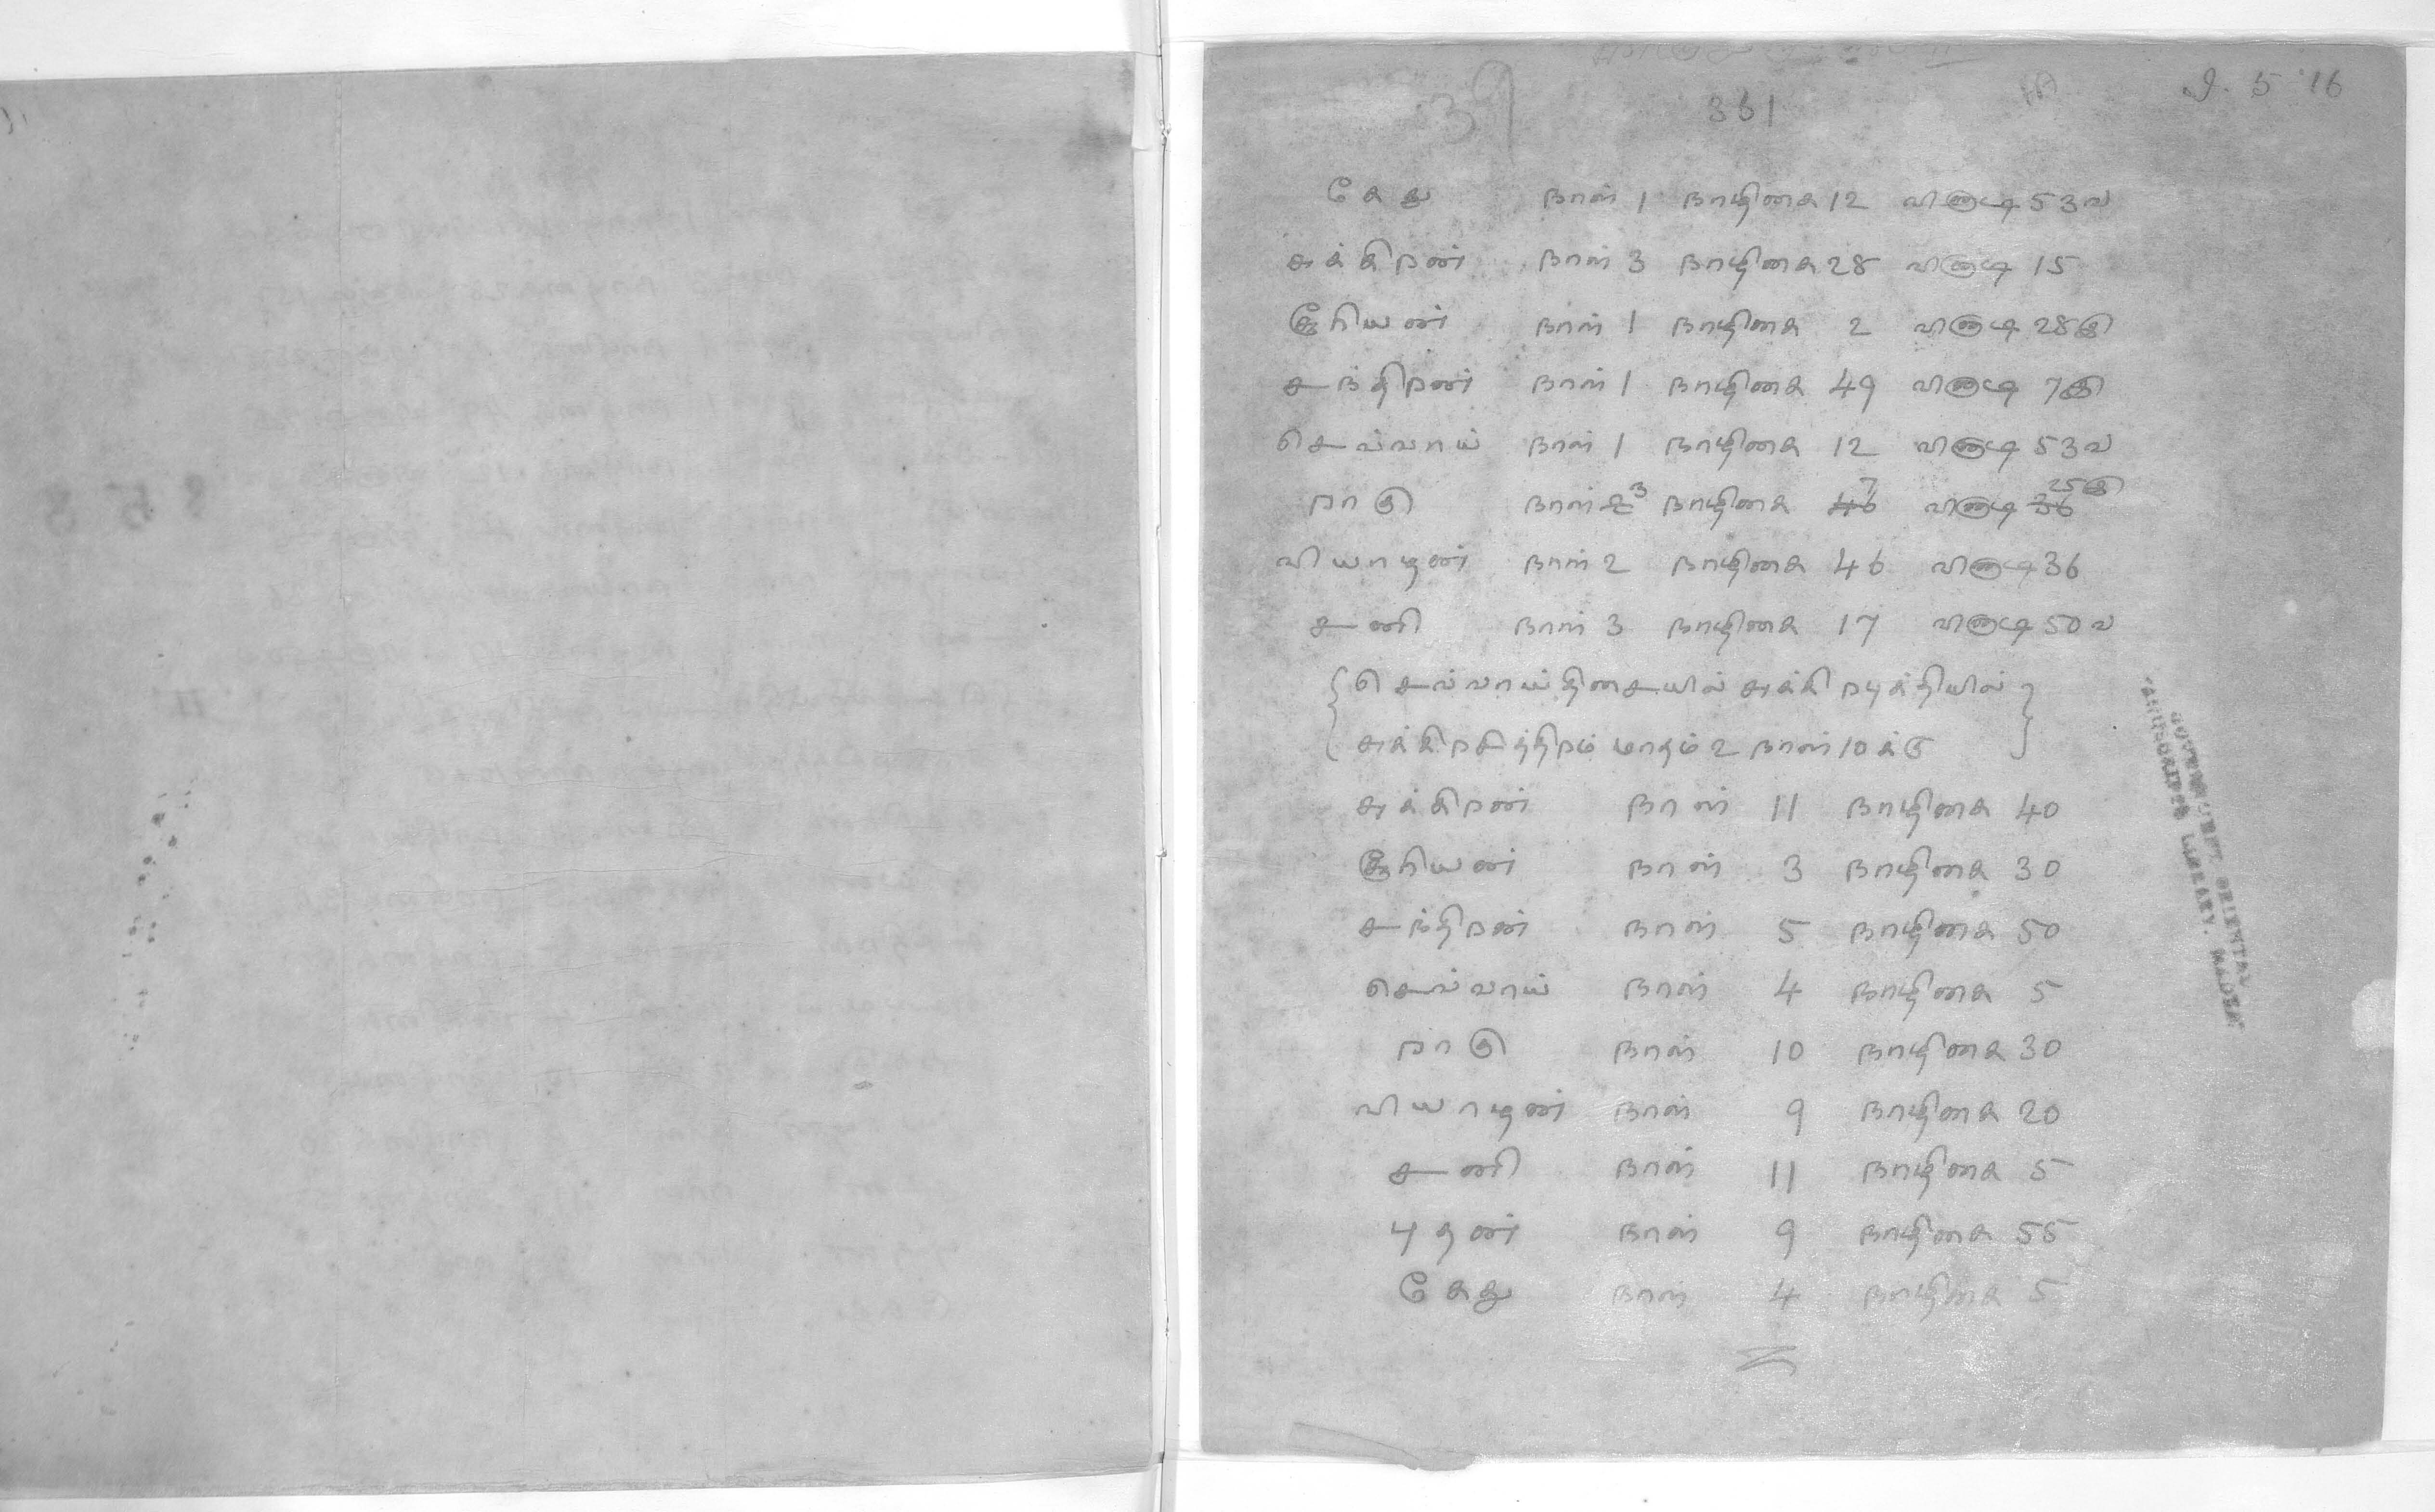 39 361 ௸ 9. 5 '16
கேது நாள் 1 நாழிகை 12 விநாடி 53வ
சுக்கிரன் நாள் 3 நாழிகை 28 விநாடி 15
சூரியன் நாள் 1 நாழிகை 2 விநாடி 28இ
சந்திரன் நாள் 1 நாழிகை 49 விநாடி 7இ
செவ்வாய் நாள் 1 நாழிகை 12 விநாடி 53வ
ராகு நாள் 3 நாழிகை 7 விநாடி 25இ
வியாழன் நாள் 2 நாழிகை 46 விநாடி 36
சனி நாள் 3 நாழிகை 17 விநாடி 50வ
{செவ்வாய்திசையில் சுக்கிரபுக்தியில்
சுக்கிரசித்திரம் மாதம் 2 நாள் 10க்கு}
சுக்கிரன் நாள் 11 நாழிகை 40
சூரியன் நாள் 3 நாழிகை 30
சந்திரன் நாள் 5 நாழிகை 50
செவ்வாய் நாள் 4 நாழிகை 5
ராகு நாள் 10 நாழிகை 30
வியாழன் நாள் 9 நாழிகை 20
சனி நாள் 11 நாழிகை 5
புதன் நாள் 9 நாழிகை 55
கேது நாள் 4 நாழிகை 5
GOVERNMENT ORIENTAL
MANUSCRIPTS LIBRARY, MADRAS